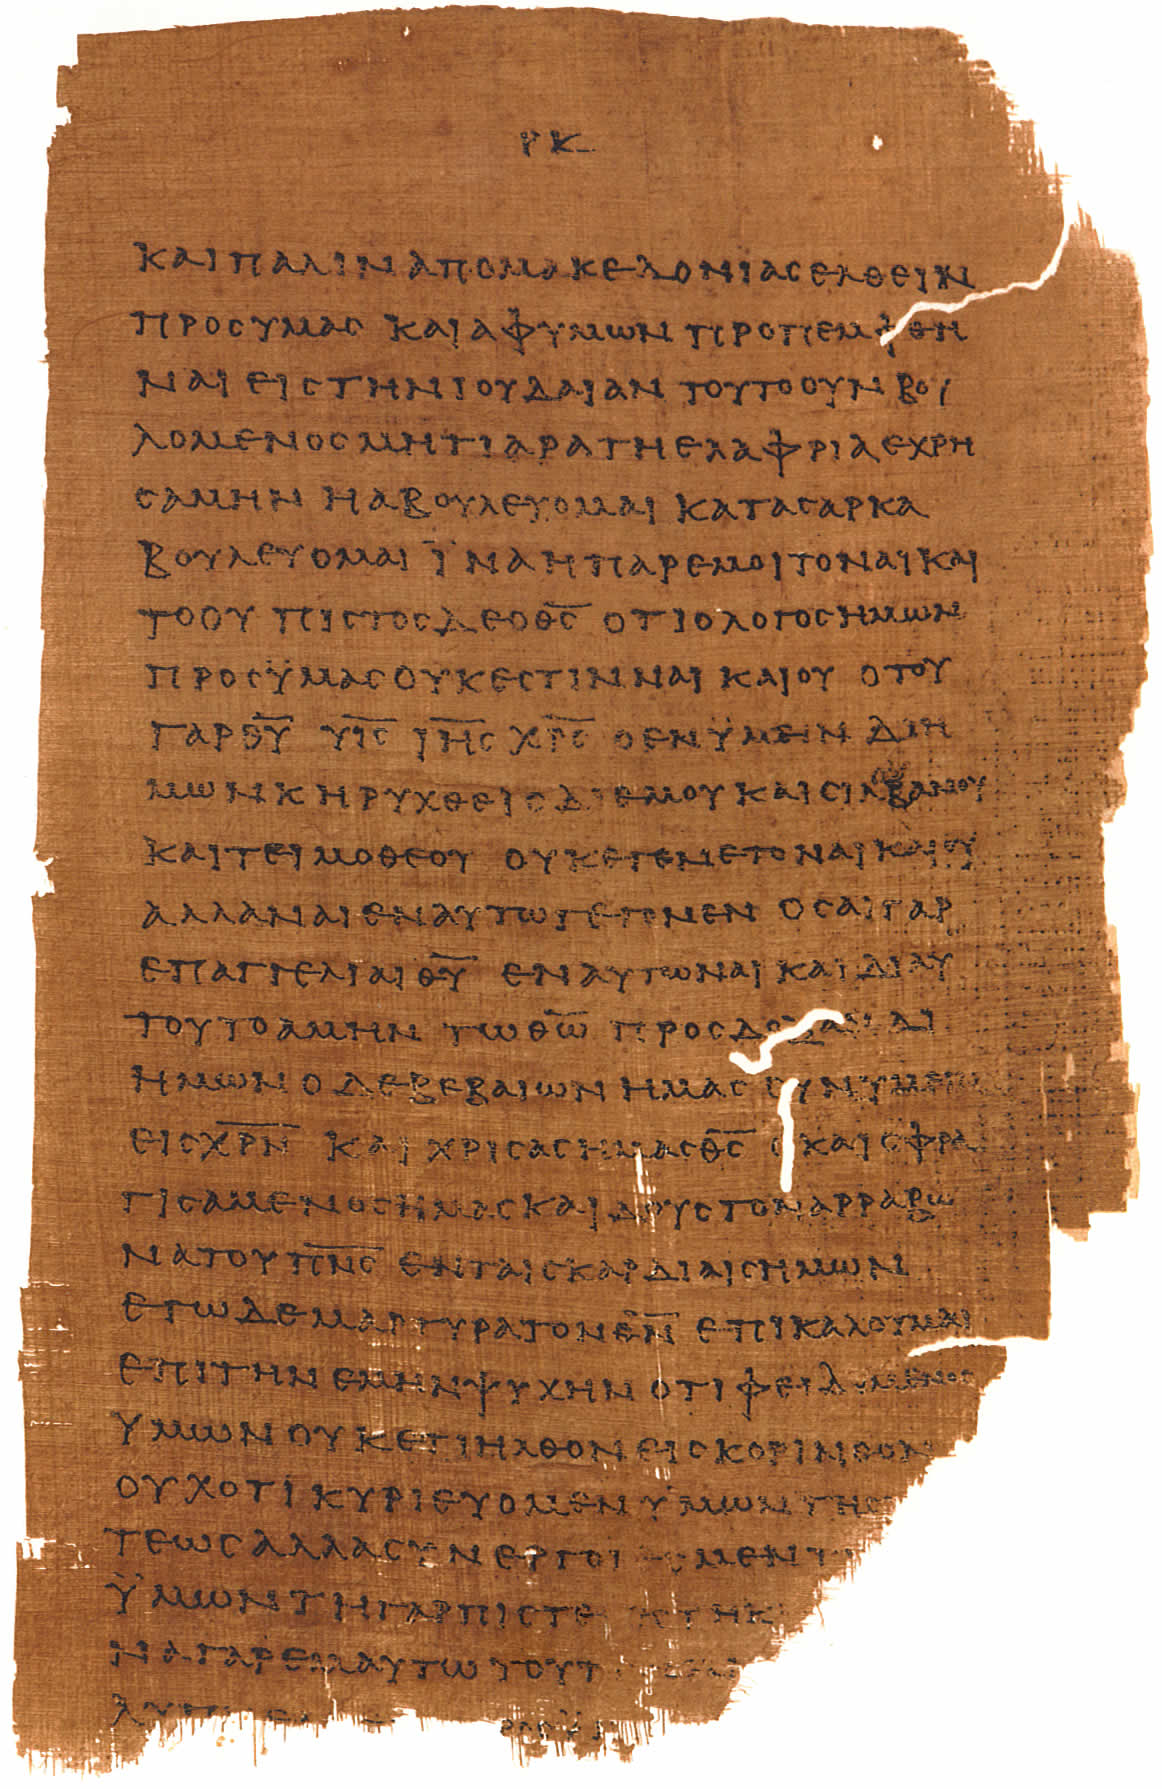 ΡΚ
ΚΑΙ ΠΑΛΙΝ ΑΠΟ ΜΑΚΕΔΟΝΙΑС ΕΛΘΕΙΝ
ΠΡΟС ΥΜΑС ΚΑΙ ΑΦ ΥΜΩΝ ΠΡΟΠΕΜΦΘΗ
ΝΑΙ ΕΙС ΤΗΝ ΙΟΥΔΑΙΑΝ ΤΟΥΤΟ ΟΥΝ
ΛΟΜΕΝΟС ΜΗΤΙ ΑΡΑ ΤΗ ΕΛΑΦΡΙΑ ΕΧΡΗ
СΑΜΗΝ Η Α ΒΟΥΛΕΥΟΜΑΙ ΚΑΤΑ СΑΡΚΑ
ΒΟΥΛΕΥΟΜΑΙ ΪΝΑ Η ΠΑΡ ΕΜΟΙ ΤΟ ΝΑΙ ΚΑΙ
ΤΟ ΟΥ ΠΙСΤΟС ΔΕ Ο Θ̅С̅ ΟΤΙ Ο ΛΟΓΟС ΗΜΩΝ
ΠΡΟС ΫΜΑС ΟΥΚ ΕСΤΙΝ ΝΑΙ ΚΑΙ ΟΥ Ο ΤΟΥ
ΓΑΡ Θ̅Υ̅ Υ̅Ι̅С̅ Ι̅Η̅С̅ Χ̅Ρ̅С̅ Ο ΕΝ ΫΜΕΙΝ ΔΙ Η
ΜΩΝ ΚΗΡΥΧΘΕΙС ΔΙ ΕΜΟΥ ΚΑΙ СΙΛΒΑΝΟΥ
ΚΑΙ ΤΕΙΜΟΘΕΟΥ ΟΥΚ ΕΓΕΝΕΤΟ ΝΑΙ ΚΑΙ ΟΥ
ΑΛΛΑ ΝΑΙ ΕΝ ΑΥΤΩ ΓΕΓΟΝΕΝ ΟСΑΙ ΓΑΡ
ΕΠΑΓΓΕΛΙΑΙ Θ̅Υ̅ ΕΝ ΑΥΤΩ ΝΑΙ ΚΑΙ ΔΙ ΑΥ
ΤΟΥ ΤΟ ΑΜΗΝ ΤΩ Θ̅Ω̅ ΠΡΟС ΔΟΞΑΝ ΔΙ
ΗΜΩΝ Ο ΔΕ ΒΕΒΑΙΩΝ ΗΜΑС СΥΝ ΫΜΕΙΝ
ΕΙС Χ̅Ρ̅Ν̅ ΚΑΙ ΧΡΙСΑС ΗΜΑС Θ̅С̅ Ο ΚΑΙ СΦΡΑ
ΓΙСΑΜΕΝΟС ΗΜΑС ΚΑΙ ΔΟΥС ΤΟΝ ΑΡΡΑΒΩ
ΝΑ ΤΟΥ Π̅Ν̅С̅ ΕΝ ΤΑΙС ΚΑΡΔΙΑΙС ΗΜΩΝ
ΕΓΩ ΔΕ ΜΑΡΤΥΡΑ ΤΟΝ Θ̅Ν̅ ΕΠΙΚΑΛΟΥΜΑΙ
ΕΠΙ ΤΗΝ ΕΜΗΝ ΨΥΧΗΝ ΟΤΙ ΦΕΙΔΟΜΕΝΟС
ΥΜΩΝ ΟΥΚΕΤΙ ΗΛΘΟΝ ΕΙС ΚΟΡΙΝΘΟΝ
ΟΥΧ ΟΤΙ ΚΥΡΙΕΥΟΜΕΝ ΫΜΩΝ ΤΗС
ΤΕΩС ΑΛΛΑ СΥΝΕΡΓΟΙ ΜΕΝ
ΫΜΩΝ ΤΗ ΓΑΡ ΠΙСΤΕΙ
ΝΑ ΓΑΡ ΕΜΑΥΤΩ ΤΟΥΤ